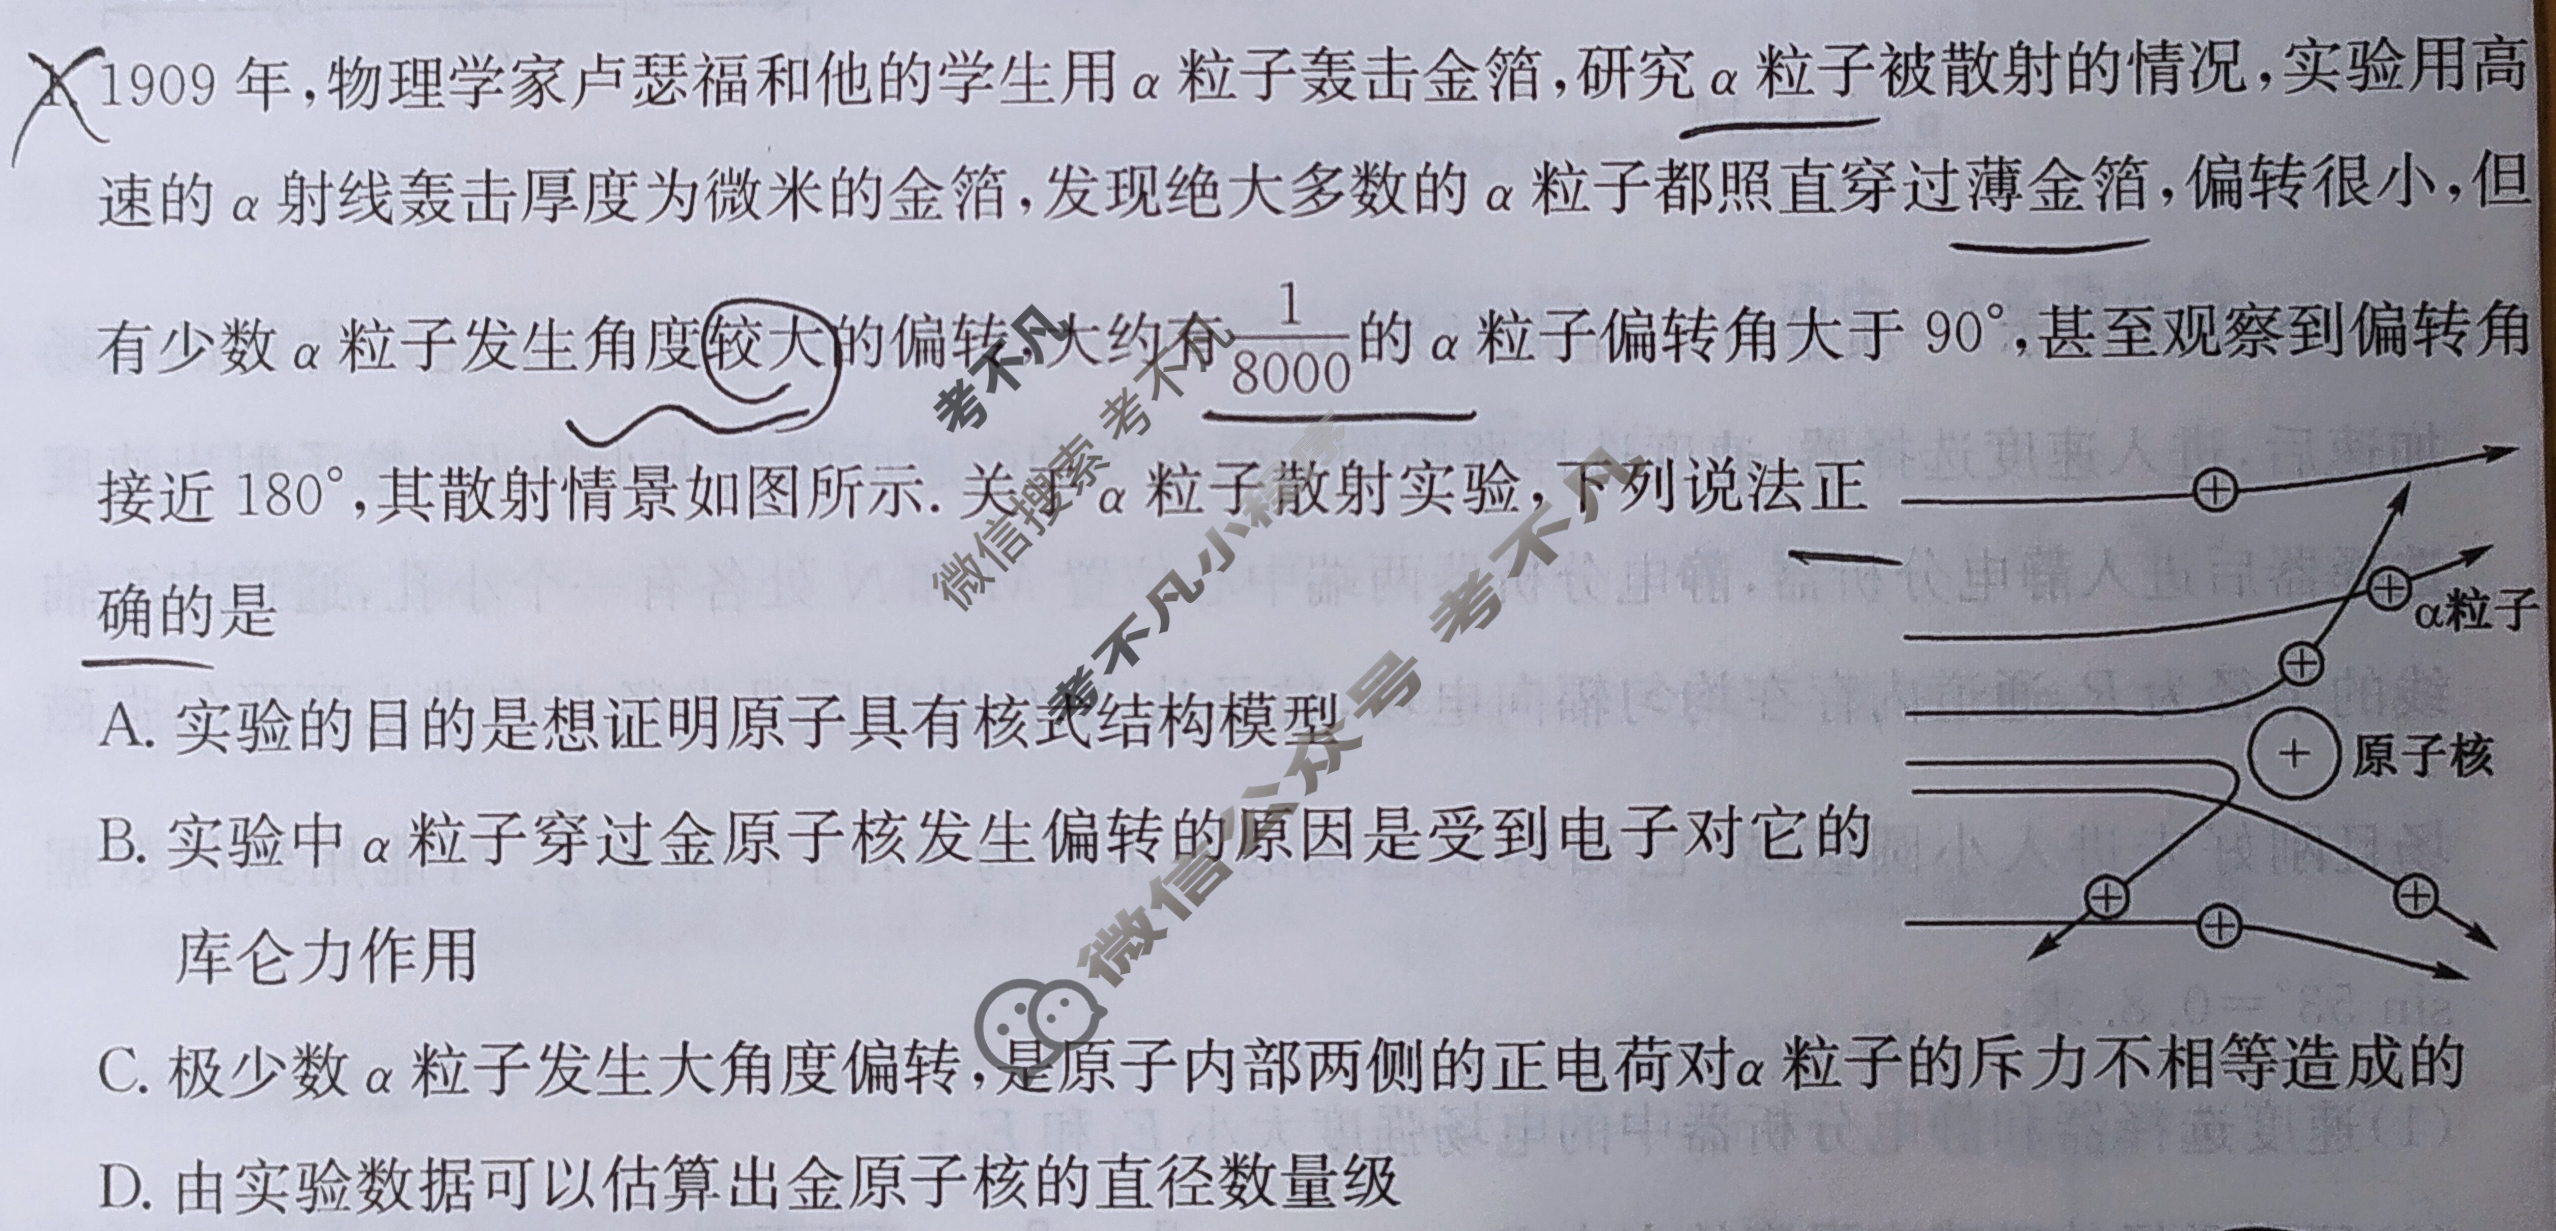 1909 年,物理学家卢瑟福和他的学生用 α 粒子轰击金箔,研究 α 粒子被散射的情况,实验用高
速的 α 射线轰击厚度为微米的金箔,发现绝大多数的 α 粒子都照直穿过薄金箔,偏转很小,但
有少数 α 粒子发生角度较大的偏转,大约有 1/8000 的 α 粒子偏转角大于 90°,甚至观察到偏转角
接近 180°,其散射情景如图所示. 关于 α 粒子散射实验,下列说法正
确的是
A. 实验的目的是想证明原子具有核式结构模型
B. 实验中 α 粒子穿过金原子核发生偏转的原因是受到电子对它的
库仑力作用
C. 极少数 α 粒子发生大角度偏转,是原子内部两侧的正电荷对α 粒子的斥力不相等造成的
D. 由实验数据可以估算出金原子核的直径数量级
α粒子
原子核
考不凡
微信搜索 考不凡
考不凡小程序
微信公众号 考不凡